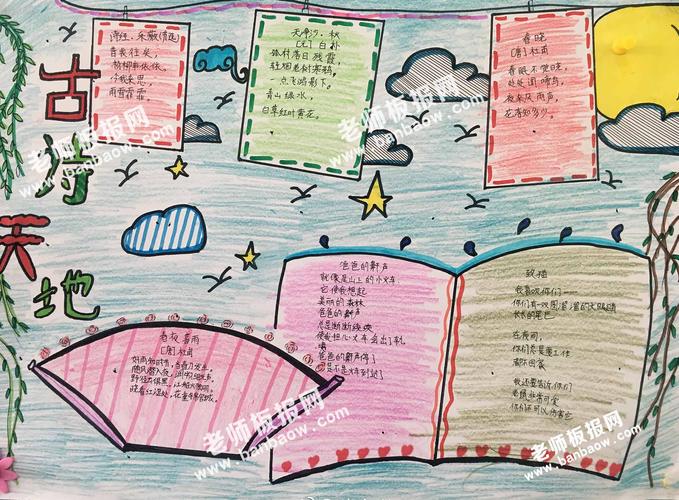 古诗天地
诗经.采薇(节选)
昔我往矣,
杨柳依依。
今我来思
雨雪霏霏。
天净沙·秋
[元]白朴
孤村落日残霞,
轻烟老树寒鸦,
一点飞鸿影下。
青山绿水,
白草红叶黄花。
春晓
[唐]杜甫
春眠不觉晓,
处处闻啼鸟,
夜来风雨声,
花落知多少。
春夜喜雨
[唐]杜甫
好雨知时节,当春乃发生。
随风潜入夜,润物细无声
野径云俱黑,江船火独明。
晓看红湿处,花重锦官城。
爸爸的鼾声
就像是山上的小火车
它使我想起
美丽的森林
爸爸的鼾声
总是断断续续
使我担心火车会出了轨
咦
爸爸的鼾声停了
是不是火车到站了
致猫
我喜欢你们——
你们有一双圆溜溜的大眼睛
长长的尾巴
在夜间,
你们总是要工作
都不回家
我还要告诉你们
老鼠非常可爱
你们还可以伤害它
老师板报网
www.banbaow.com
老师板报网
www.banbaow.com
老师板报网
www.banbaow.com
老师板报网
www.banbaow.com